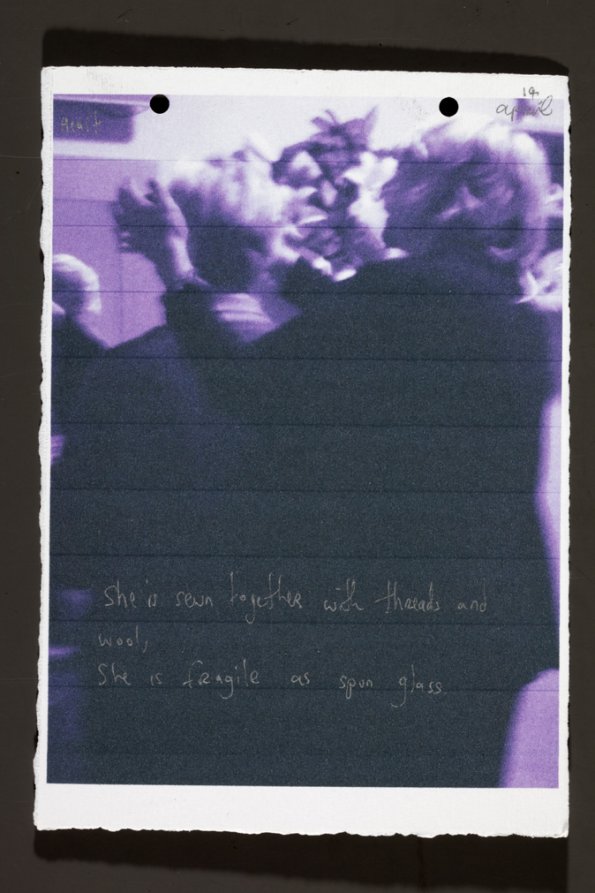 14
april
She is sewn together with threads and
wool,
She is fragile as spun glass